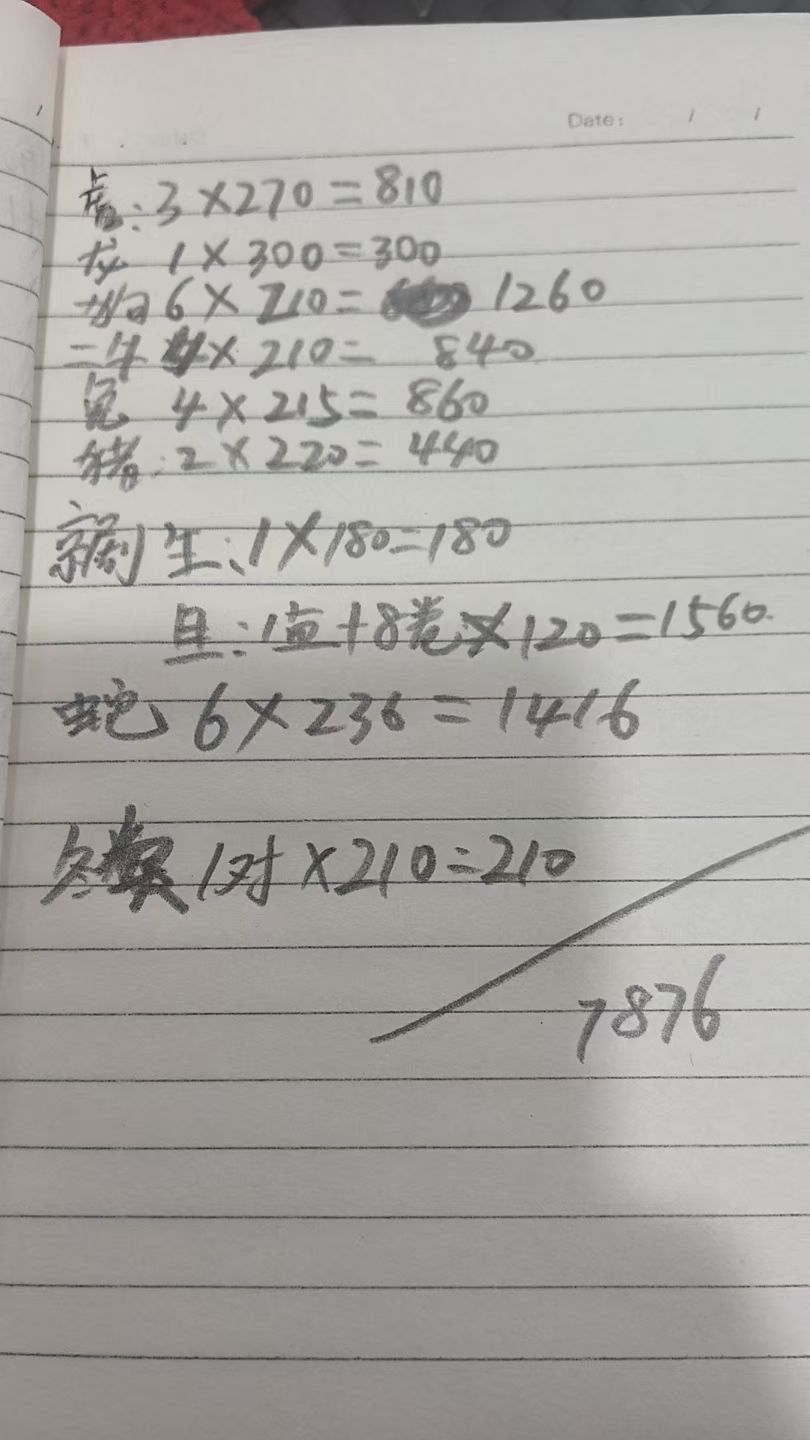 Date: / /
虎:3×270=810
龙 1×300=300
狗6×210= 1260
二牛 4×210= 840
兔 4×215=860
猪:2×220=440
京剧 生:1×180=180
旦:1盒+8卷×120=1560.
蛇 6×236=1416
1对×210=210
7876